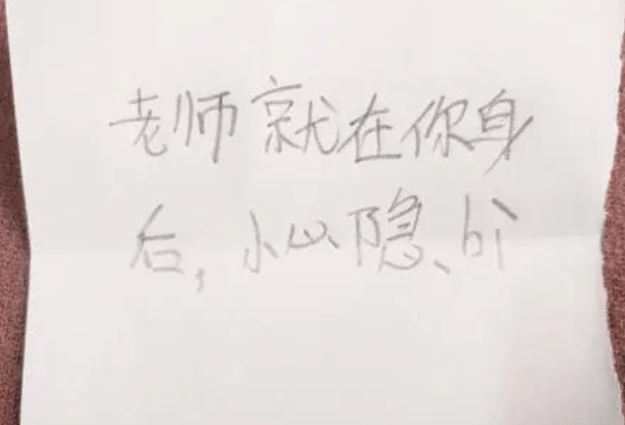 老师就在你身
后，小心隐、bi